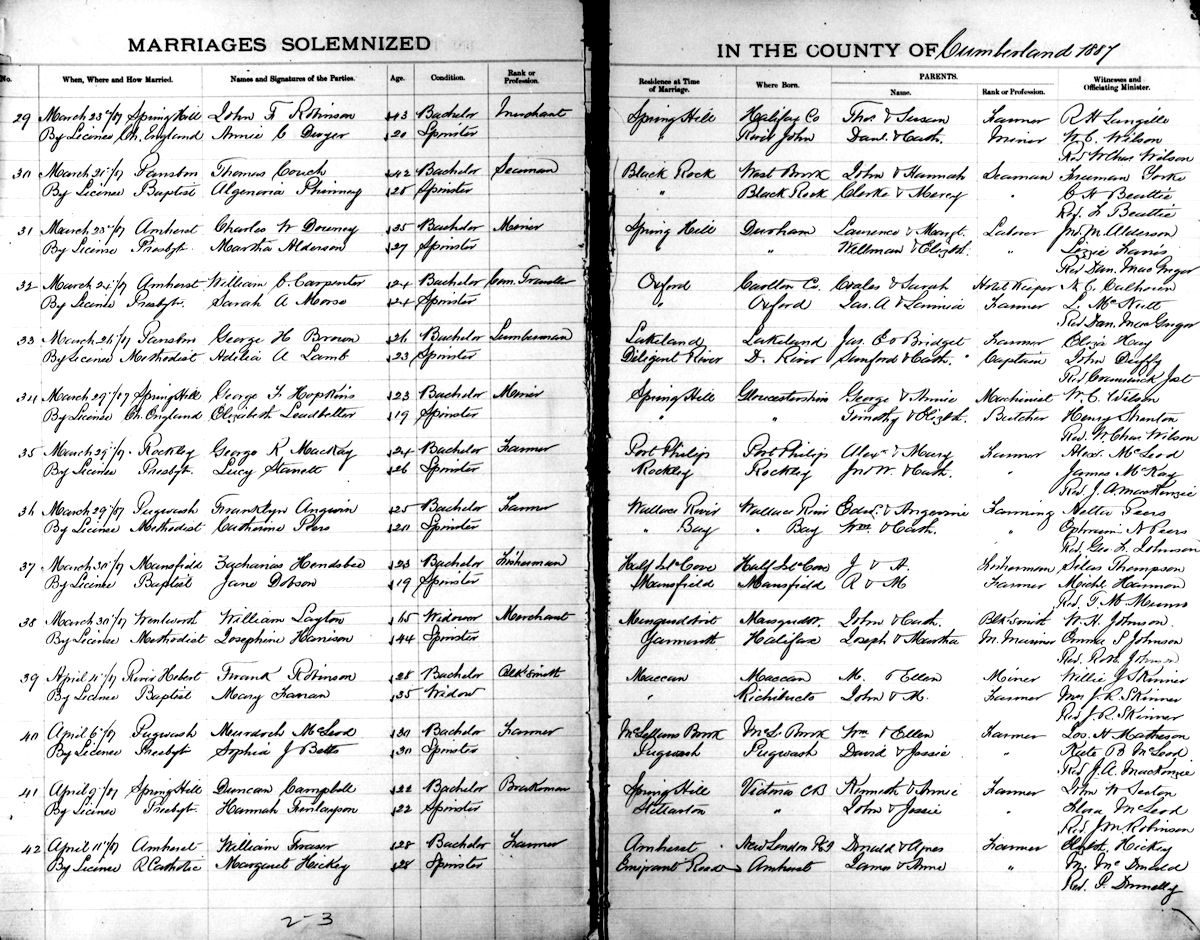 MARRIAGES SOLEMNIZED IN THE COUNTY OF Cumberland 1887
No. When, Where and How Married. Names and Signatures of the Parties. Age. Condition. Rank or Profession. Residence at Time of Marriage. Where Born. PARENTS. Name. Rank or Profession. Witnesses and Officiating Minister.
29 March 23rd/87 Spring Hill John F Robinson 43 Bachelor Merchant Spring Hill Halifax Co Thos. & Susan Farmer R H Langille
By License Ch. England Annie C Dwyer 20 Spinster " River John Danl. & Cath. Miner W. C. Wilson
Rev W Chas Wilson
30 March 21st/87 Parrsboro Thomas Couch 42 Bachelor Seaman Black Rock West Brook John & Hannah Seaman Freeman Yorke
By License Baptist Algenoria Phinney 28 Spinster " Black Rock Clarke & Mercy " C H Beattie
Rev. F. Beattie
31 March 23rd/87 Amherst Charles W Downey 35 Bachelor Miner Spring Hill Durham Laurence & Margt. Laborer Jno. M. Alderson
By License Presbyt. Martha Alderson 27 Spinster " " Wellman & Elizbth. Lizzie
Rev Dan. MacGregor
32 March 24/87 Amherst William C. Carpenter 24 Bachelor Com. Traveller Oxford Carlton Co. & Sarah Hotel Keeper N. C. Calhoun
By License Presbyt. Sarah A Morse 24 Spinster " Oxford Jas. A & Farmer L. McNutt
Rev Dan. MacGregor
33 March 26/87 Parrsboro George H Brown 26 Bachelor Lumberman Lakeland Lakeland Jas. E & Bridget Farmer Eliza Hay
By License Methodist Adelia A Lamb 23 Spinster Diligent River D. River Sanford & Cath. " Captain John Duffy
Rev Craswick Jost
34 March 29/87 Spring Hill George F Hopkins 23 Bachelor Miner Spring Hill Gloucestershire George & Annie Machinist W. C. Wilson
By License Ch. England Elizabeth Leadbetter 19 Spinster " Timothy & Elizbth. Butcher Henry Stanton
Rev. W Chas Wilson
35 March 29/87 Rockley George R MacKay 24 Bachelor Farmer Port Philip Port Philip Alex. & Mary Farmer Alexd. McLeod
By License Presbyt. Lucy 26 Spinster Rockley Rockley Jno W. & Cath. " James McKay
Rev J. A. MacKenzie
36 March 29/87 Pugwash Franklyn Angwin 25 Bachelor Farmer Wallace River Wallace River Edwd. & Farming Nettie Peers
By License Methodist Catherine Peers 20 Spinster " Bay " Bay Wm. & Cath. " Ephraim N Peers
Rev. Geo F. Johnson
37 March 30/87 Mansfield Zacharias Hendsbee 23 Bachelor Fisherman Half Isl. Cove Half Isl. Cove J & A. Fisherman Silas Thompson
By License Baptist Jane Dobson 19 Spinster Mansfield Mansfield R & M Farmer Michl. Hannon
Rev. T. M. Munro
38 March 30/87 Wentworth William Layton 65 Widower Merchant John & Cath. Blk Smith W. H. Johnson
By License Methodist Josephine Harrison 44 Spinster Yarmouth Halifax Joseph & Martha M. Mariner Emma S Johnson
Rev. Robt. Johnson
39 April 4/87 River Hebert Frank Robinson 28 Bachelor Blk Smith Maccan Maccan M. & Ellen Miner Willie J Skinner
By License Baptist Mary 35 Widow " Richibucto John & M. Farmer Mrs J. R. Skinner
Rev J. R. Skinner
40 April 6/87 Pugwash Murdoch McLeod 30 Bachelor Farmer McLellans Brook McL. Brook Wm & Ellen Farmer Jos. H Matheson
By License Presbyt. Sophia J Betts 30 Spinster Pugwash Pugwash David & Jessie " Kate B McLeod
Rev. J. A. MacKenzie
41 April 9/87 Spring Hill Duncan Campbell 22 Bachelor Brakeman Spring Hill Victoria CB Kenneth & Annie Farmer John W Sexton
By License Presbyt. Hannah Finlayson 22 Spinster Stellarton " John & Jessie Flora McLeod
Rev J M Robinson
42 April 11/87 Amherst William Fraser 28 Bachelor Farmer Amherst New London PEI Donald & Agnes Farmer Hickey
By License R Catholic Margaret Hickey 28 Spinster Emigrant Road Amherst James & Anne " M. McDonald
Rev. P. Donnelly
2-3